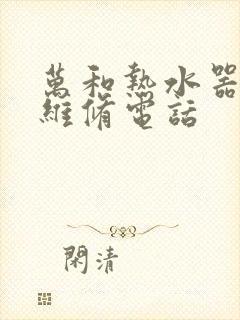 萬和熱水器
維脩電話
閑清